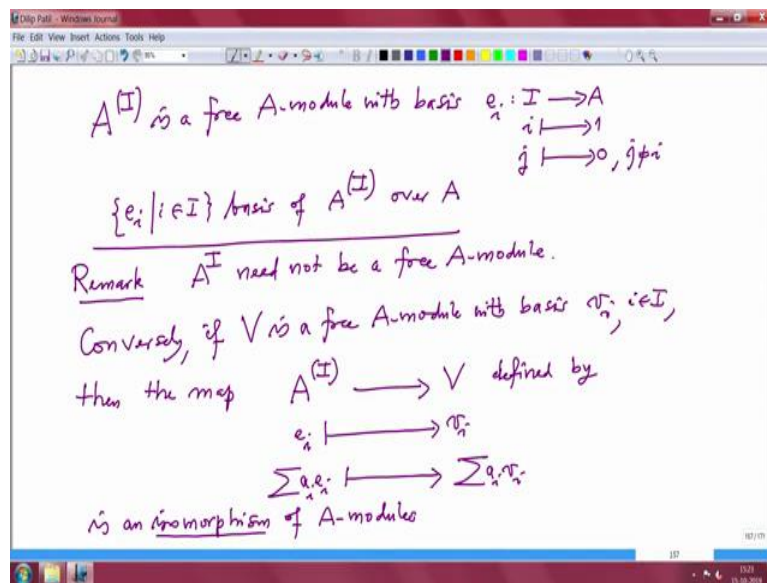 Dilip Patil - Windows Journal
File Edit View Insert Actions Tools Help
A^(I) is a free A-module with basis e_i : I ⟶ A
i ⟼ 1
j ⟼ 0, j≠i
{e_i | i ∈ I} basis of A^(I) over A
Remark A^I need not be a free A-module.
Conversely, if V is a free A-module with basis v_i, i∈I,
then the map A^(I) ⟶ V defined by
e_i ⟼ v_i
∑a_i e_i ⟼ ∑a_i v_i
is an isomorphism of A-modules
157
15:23
15-10-2016